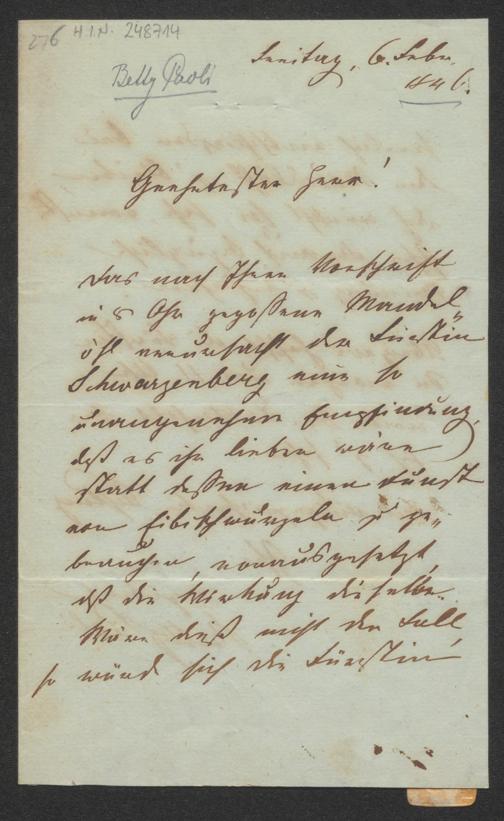 276 H.I.N. 248714
Betty Paoli
Freitag, 6. Febr.
846.
Geehrtester Herr!
Das nach Ihrer Vorschrift
in's Ohr gegossene Mandel
öhl verursacht der Fürstin
Schwarzenberg eine so
unangenehme Empfindung,
daß es ihr lieber wäre
statt dessen einen Dunst
von Eibischwurzeln zu ge„
brauchen, vorausgesetzt,
daß die Wirkung dieselbe.
Wäre dieß nicht der Fall,
so würde sich die Fürstin